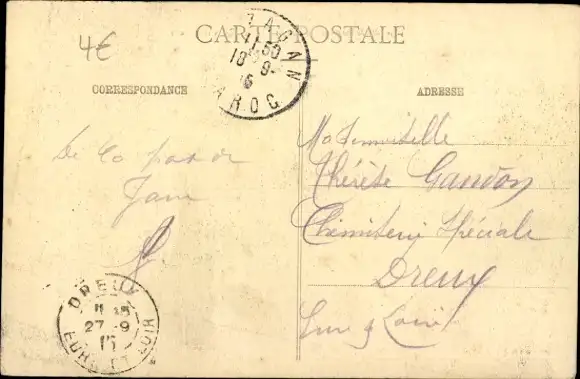 4€
CARTE POSTALE
AGAN
11.50
18 9-
15
MAROC
CORRESPONDANCE
ADRESSE
De la part de
Mademoiselle
Thérèse Gandon
Spéciale
Dreux
Eure & Loir
DREUX
27 -9
15
EURE ET LOIR